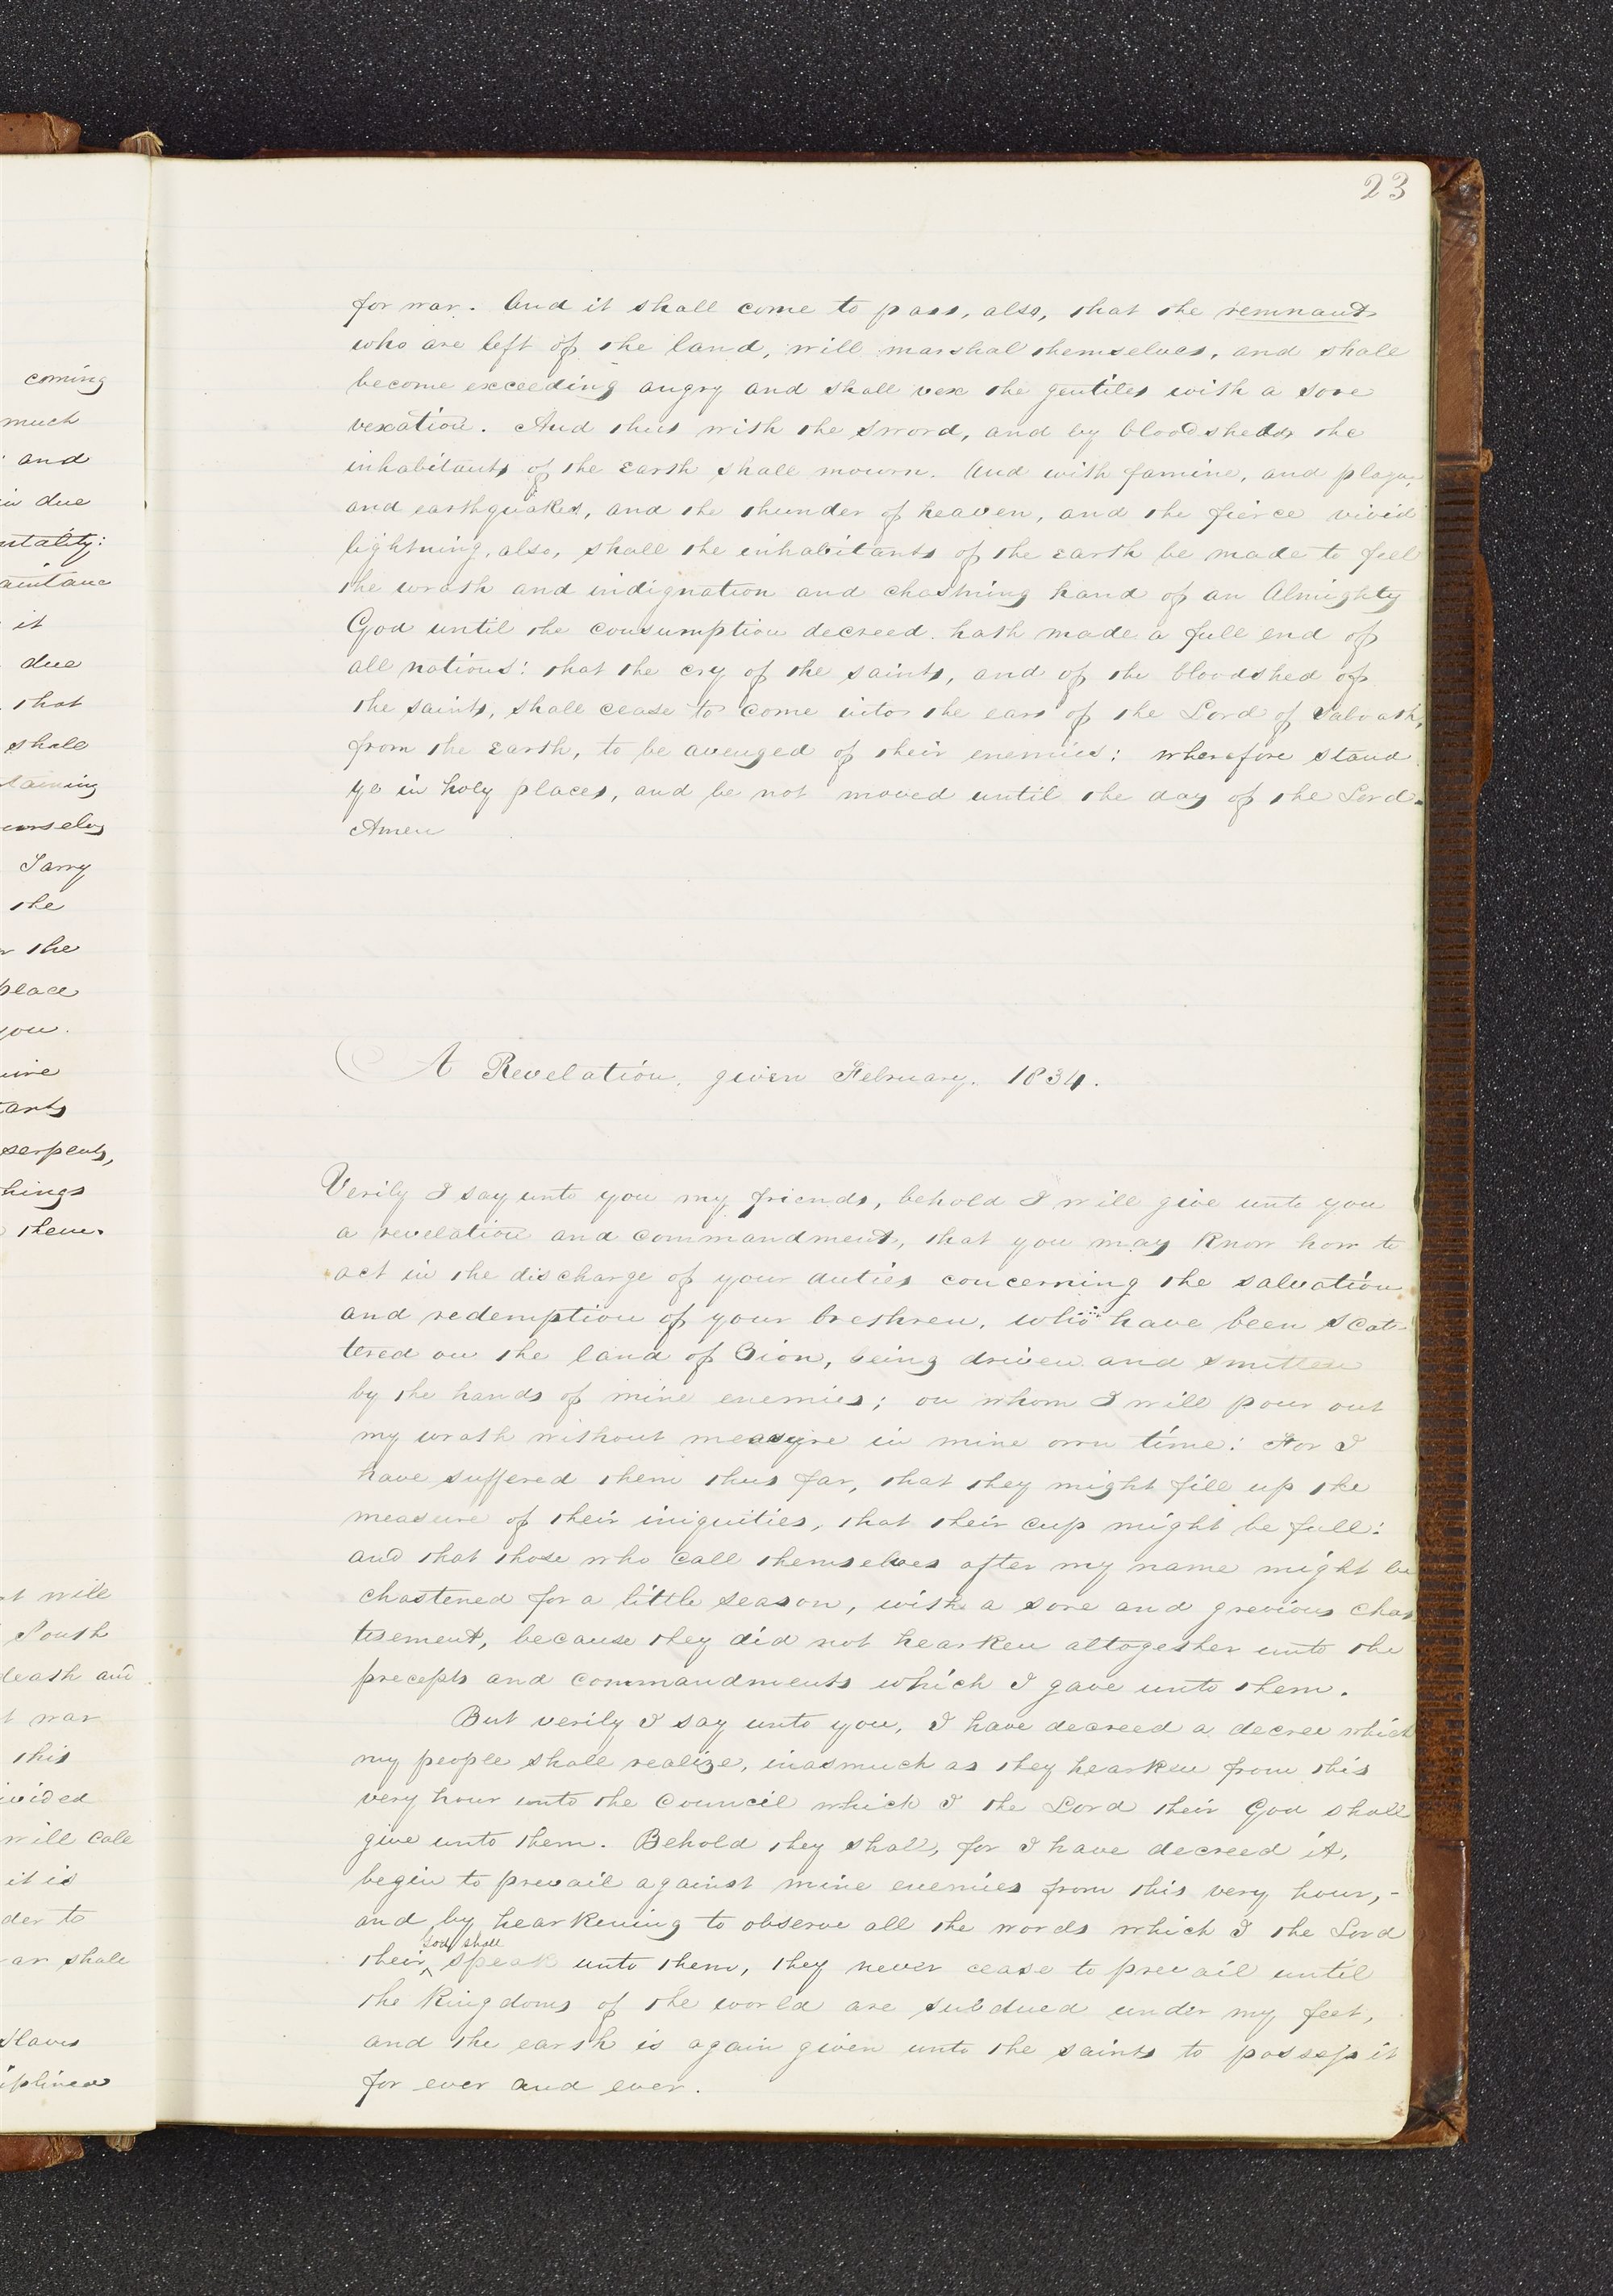 23
for war. And it shall come to pass, also, that the remnants
who are left of the land, will marshal themselves, and shall
become exceeding angry and shall vex the gentiles with a sore
vexation. And thus with the sword, and by bloodshed, the
inhabitants of the Earth shall mourn. And with famine, and plague,
and earthquakes, and the thunder of heaven, and the fierce vivid
lightning, also, shall the inhabitants of the Earth be made to feel
the wrath and indignation and chastning hand of an Almighty
God until the consumption decreed. hath made a full end of
all nations: that the cry of the saints, and of the bloodshed of
the saints, shall cease to come into the ears of the Lord of Saboath,
from the Earth, to be avenged of their enemies: wherefore stand
ye in holy places, and be not moved until the day of the Lord.
Amen
A Revelation, given February. 1834.
Verily I say unto you my friends, behold I will give unto you
a revelation and commandment, that you may know how to
act in the discharge of your duties concerning the salvation
and redemption of your brethren, who have been scat
tered on the land of Zion, being driven and smitten
by the hands of mine enemies; on whom I will pour out
my wrath without measure in mine own time: For I
have suffered them thus far, that they might fill up the
measure of their iniquities, that their cup might be full:
and that those who call themselves after my name might be
chastened for a little season, with a sore and grevious chas
tisement, because they did not hearken altogether unto the
precepts and commandments which I gave unto them.
But verily I say unto you, I have decreed a decree which
my people shall realize, inasmuch as they hearken from this
very hour unto the Council which I the Lord their God shall
give unto them. Behold they shall, for I have decreed it,
begin to prevail against mine enemies from this very hour,-
and by hearkening to observe all the words which I the Lord
their God shall speak unto them, they never cease to prevail until
the Kingdoms of the world are subdued under my feet,
and the earth is again given unto the saints to possess it
for ever and ever.
coming
much
and
in due
it
due
that
shall
Tarry
the
the
place
you.
serpents,
things
them.
will
South
death and
war
this
will call
it is
to
shall
Slaves